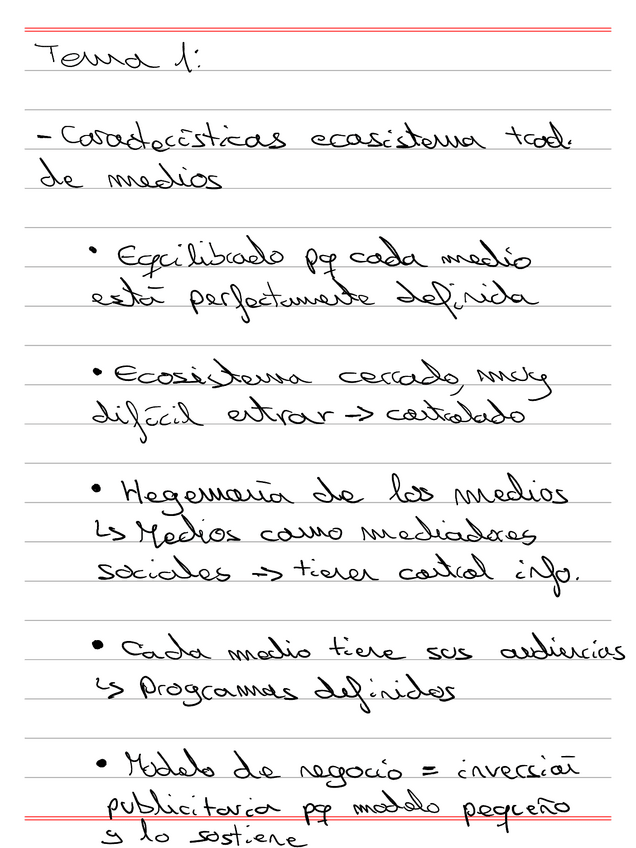 Tema 1:
- Características ecosistema trad.
de medios
• Eqcilibrado pq cada medio
está perfectamente definida
• Ecosistema cerrado, muy
difícil entrar -> controlado
• Hegemonía de los medios
↳ Medios como mediadores
sociales -> tienen control info.
• Cada medio tiene sus audiencias
↳ Programas definidos
• Modelo de negocio = inversión
publicitaria pq modelo pequeño
y lo sostiene